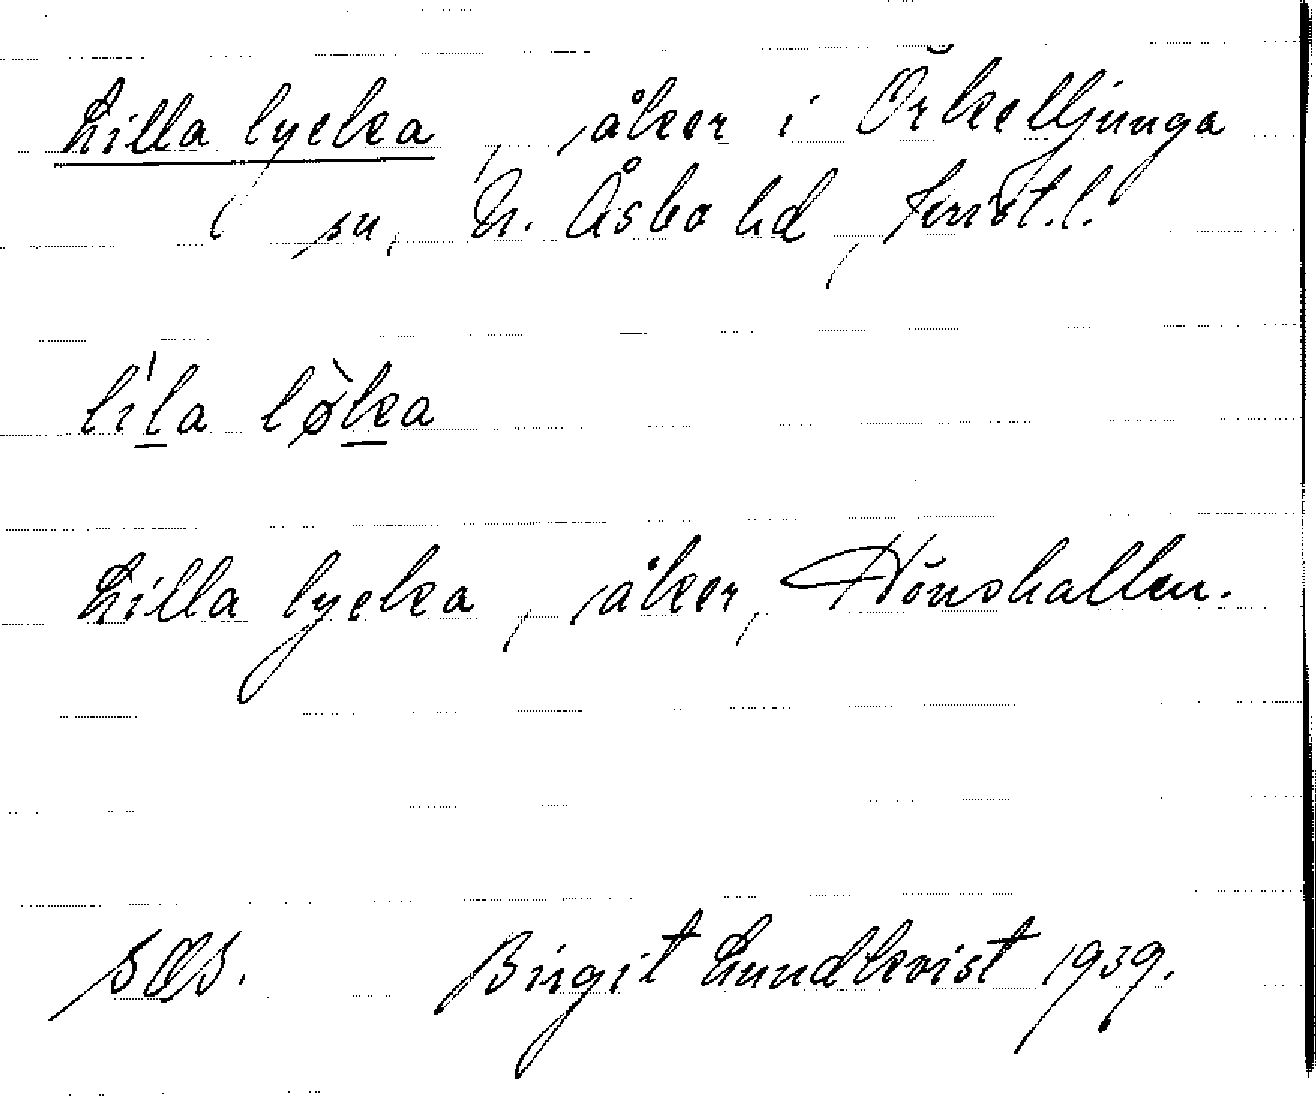 Lilla lycka, åker i Örkelljunga
sn, N. Åsbo hd, Krist.l.
lı̍l̲a løk̲a
Lilla lycka, åker, Hönshallen.
Birgit Lundkvist 1939.